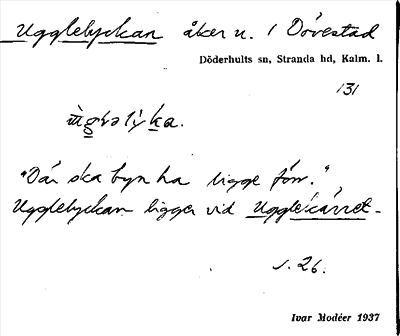 Ugglelyckan åker u. 1 Dövestad
Döderhults sn, Stranda hd, Kalm. l.
131
"Där ska byn ha ligge förr."
Ugglelyckan ligger vid Ugglekärret.
s. 26.
Ivar Modéer 1937